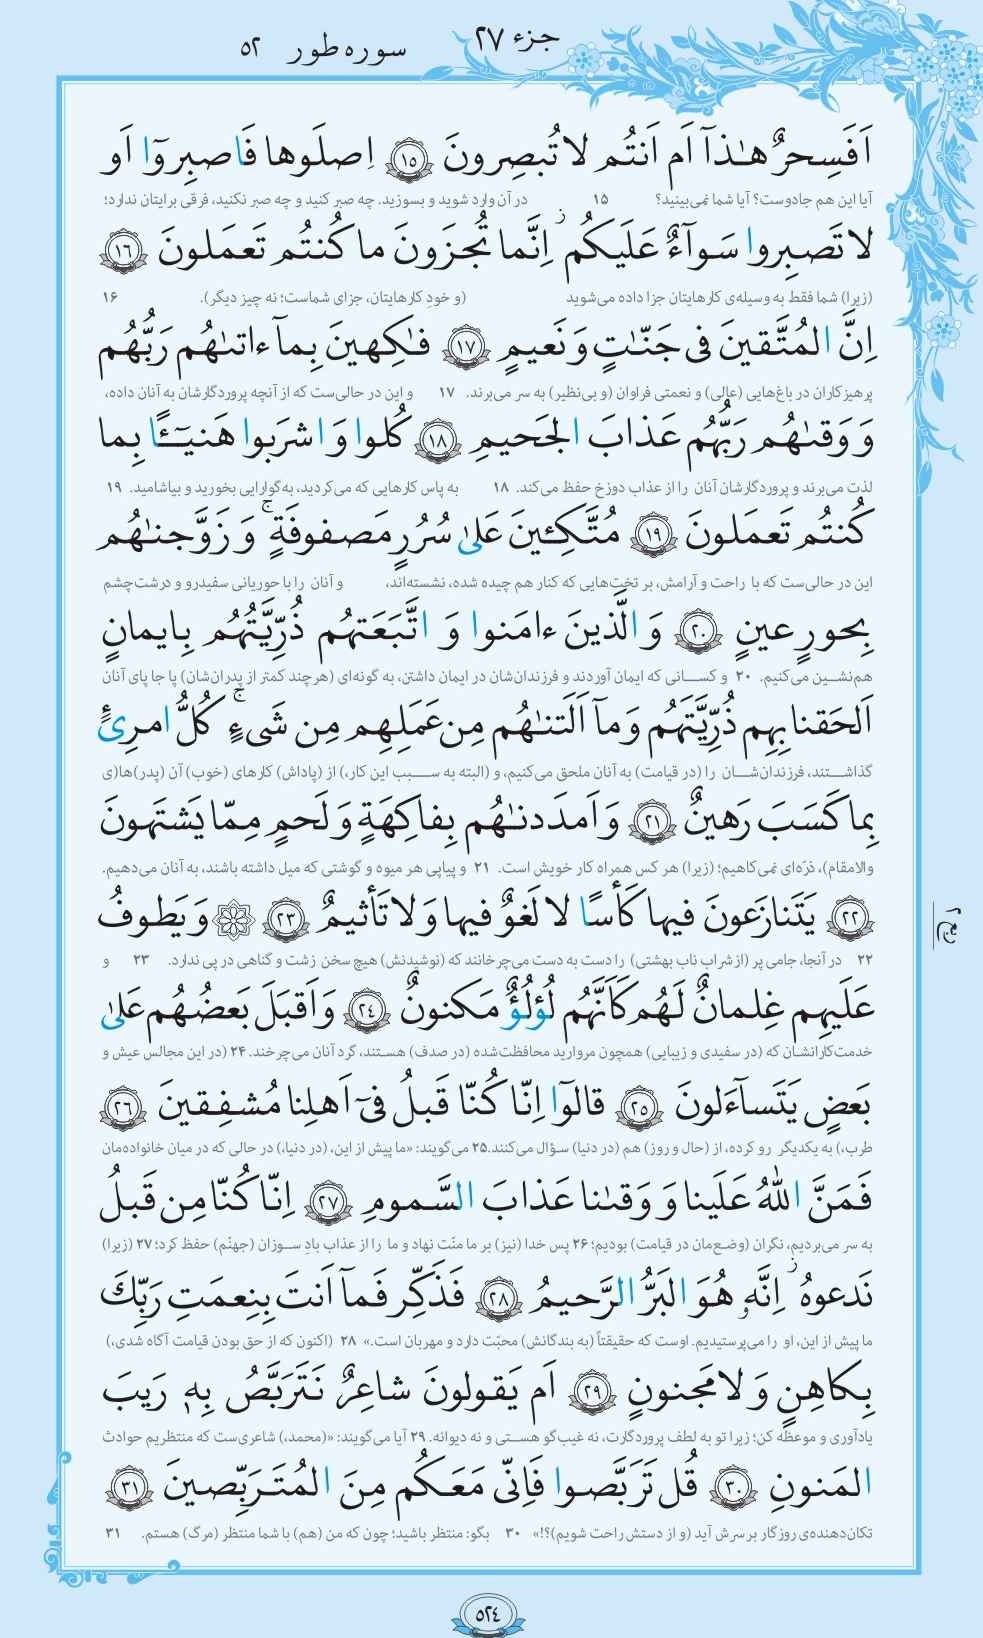 جزء ۲۷
سوره طور ۵۲
اَفَسِحرٌ هـٰذآ اَم اَنتُم لا تُبصِرونَ ﴿١٥﴾ اِصلَوها فَاصبِروٓا اَو
آیا این هم جادوست؟ آیا شما نمی‌بینید؟ ۱۵ در آن وارد شوید و بسوزید. چه صبر کنید و چه صبر نکنید، فرقی برایتان ندارد؛
لا تَصبِروا سَوآءٌ عَلَيكُم ز اِنَّما تُجزَونَ ما كُنتُم تَعمَلونَ ﴿١٦﴾
(زیرا) شما فقط به وسیله‌ی کارهایتان جزا داده می‌شوید (و خودِ کارهایتان، جزای شماست؛ نه چیز دیگر). ۱۶
اِنَّ المُتَّقينَ فى جَنّـٰتٍ وَ نَعيمٍ ﴿١٧﴾ فـٰكِهينَ بِمآ ءاتىٰهُم رَبُّهُم
پرهیزکاران در باغ‌هایی (عالی) و نعمتی فراوان (و بی‌نظیر) به سر می‌برند. ۱۷ و این در حالی‌ست که از آنچه پروردگارشان به آنان داده،
وَ وَقىٰهُم رَبُّهُم عَذابَ الجَحيمِ ﴿١٨﴾ كُلوا وَ اشرَبوا هَنيـٓـًٔا بِما
لذت می‌برند و پروردگارشان آنان را از عذاب دوزخ حفظ می‌کند. ۱۸ به پاس کارهایی که می‌کردید، به‌گوارایی بخورید و بیاشامید. ۱۹
كُنتُم تَعمَلونَ ﴿١٩﴾ مُتَّكِـٔينَ عَلىٰ سُرُرٍ مَصفوفَةٍ ج وَ زَوَّجنـٰهُم
این در حالی‌ست که با راحت و آرامش، بر تخت‌هایی که کنار هم چیده شده، نشسته‌اند، و آنان را با حوریانی سفیدرو و درشت‌چشم
بِحورٍ عينٍ ﴿٢٠﴾ وَ الَّذينَ ءامَنوا وَ اتَّبَعَتهُم ذُرِّيَّتُهُم بِايمانٍ
هم‌نشـین می‌کنیم. ۲۰ و کسـانی که ایمان آوردند و فرزندان‌شان در ایمان داشتن، به گونه‌ای (هرچند کمتر از پدران‌شان) پا جا پای آنان
اَلحَقنا بِهِم ذُرِّيَّتَهُم وَ مآ اَلَتنـٰهُم مِن عَمَلِهِم مِن شَىءٍ ج كُلُّ امرِئٍ
گذاشـتند، فرزندان‌شـان را (در قیامت) به آنان ملحق می‌کنیم، و (البته به سـبب این کار،) از (پاداش) کارهای (خوب) آن (پدر)ها(ی
بِما كَسَبَ رَهينٌ ﴿٢١﴾ وَ اَمدَدنـٰهُم بِفاكِهَةٍ وَ لَحمٍ مِمّا يَشتَهونَ
والامقام)، ذرّه‌ای نمی‌کاهیم؛ (زیرا) هر کس همراه کار خویش است. ۲۱ و پیاپی هر میوه و گوشتی که میل داشته باشند، به آنان می‌دهیم.
﴿٢٢﴾ يَتَنازَعونَ فيها كَأسًا لا لَغوٌ فيها وَ لا تَأثيمٌ ﴿٢٣﴾ ۞ وَ يَطوفُ
۲۲ در آنجا، جامی پر (از شراب ناب بهشتی) را دست به دست می‌چرخانند که (نوشیدنش) هیچ سخن زشت و گناهی در پی ندارد. ۲۳ و
عَلَيهِم غِلمانٌ لَهُم كَاَنَّهُم لُؤلُؤٌ مَكنونٌ ﴿٢٤﴾ وَ اَقبَلَ بَعضُهُم عَلىٰ
خدمت‌کارانشـان که (در سفیدی و زیبایی) همچون مروارید محافظت‌شده (در صدف) هسـتند، گرد آنان می‌چرخند. ۲۴ (در این مجالس عیش و
بَعضٍ يَتَسآءَلونَ ﴿٢٥﴾ قالوٓا اِنّا كُنّا قَبلُ فىٓ اَهلِنا مُشفِقينَ ﴿٢٦﴾
طرب،) به یکدیگر رو کرده، از (حال و روز) هم (در دنیا) سـؤال می‌کنند. ۲۵ می‌گویند: «ما پیش از این، (در دنیا،) در حالی که در میان خانواده‌مان
فَمَنَّ اللّٰهُ عَلَينا وَ وَقىٰنا عَذابَ السَّمومِ ﴿٢٧﴾ اِنّا كُنّا مِن قَبلُ
به سر می‌بردیم، نگران (وضـع‌مان در قیامت) بودیم؛ ۲۶ پس خدا (نیز) بر ما منّت نهاد و ما را از عذاب بادِ سـوزان (جهنّم) حفظ کرد؛ ۲۷ (زیرا)
نَدعوهُ ز اِنَّهٗ هُوَ البَرُّ الرَّحيمُ ﴿٢٨﴾ فَذَكِّر فَمآ اَنتَ بِنِعمَتِ رَبِّكَ
ما پیش از این، او را می‌پرستیدیم. اوست که حقیقتاً (به بندگانش) محبّت دارد و مهربان است.» ۲۸ (اکنون که از حق بودن قیامت آگاه شدی،)
بِكاهِنٍ وَ لا مَجنونٍ ﴿٢٩﴾ اَم يَقولونَ شاعِرٌ نَتَرَبَّصُ بِهٖ رَيبَ
یادآوری و موعظه کن؛ زیرا تو به لطف پروردگارت، نه غیب‌گو هسـتی و نه دیوانه. ۲۹ آیا می‌گویند: «(محمد،) شاعری‌ست که منتظریم حوادث
المَنونِ ﴿٣٠﴾ قُل تَرَبَّصوا فَاِنّى مَعَكُم مِنَ المُتَرَبِّصينَ ﴿٣١﴾
تکان‌دهنده‌ی روزگار بر سرش آید (و از دستش راحت شویم)؟!» ۳۰ بگو: منتظر باشید؛ چون که من (هم) با شما منتظر (مرگ) هستم. ۳۱
۵۲۴